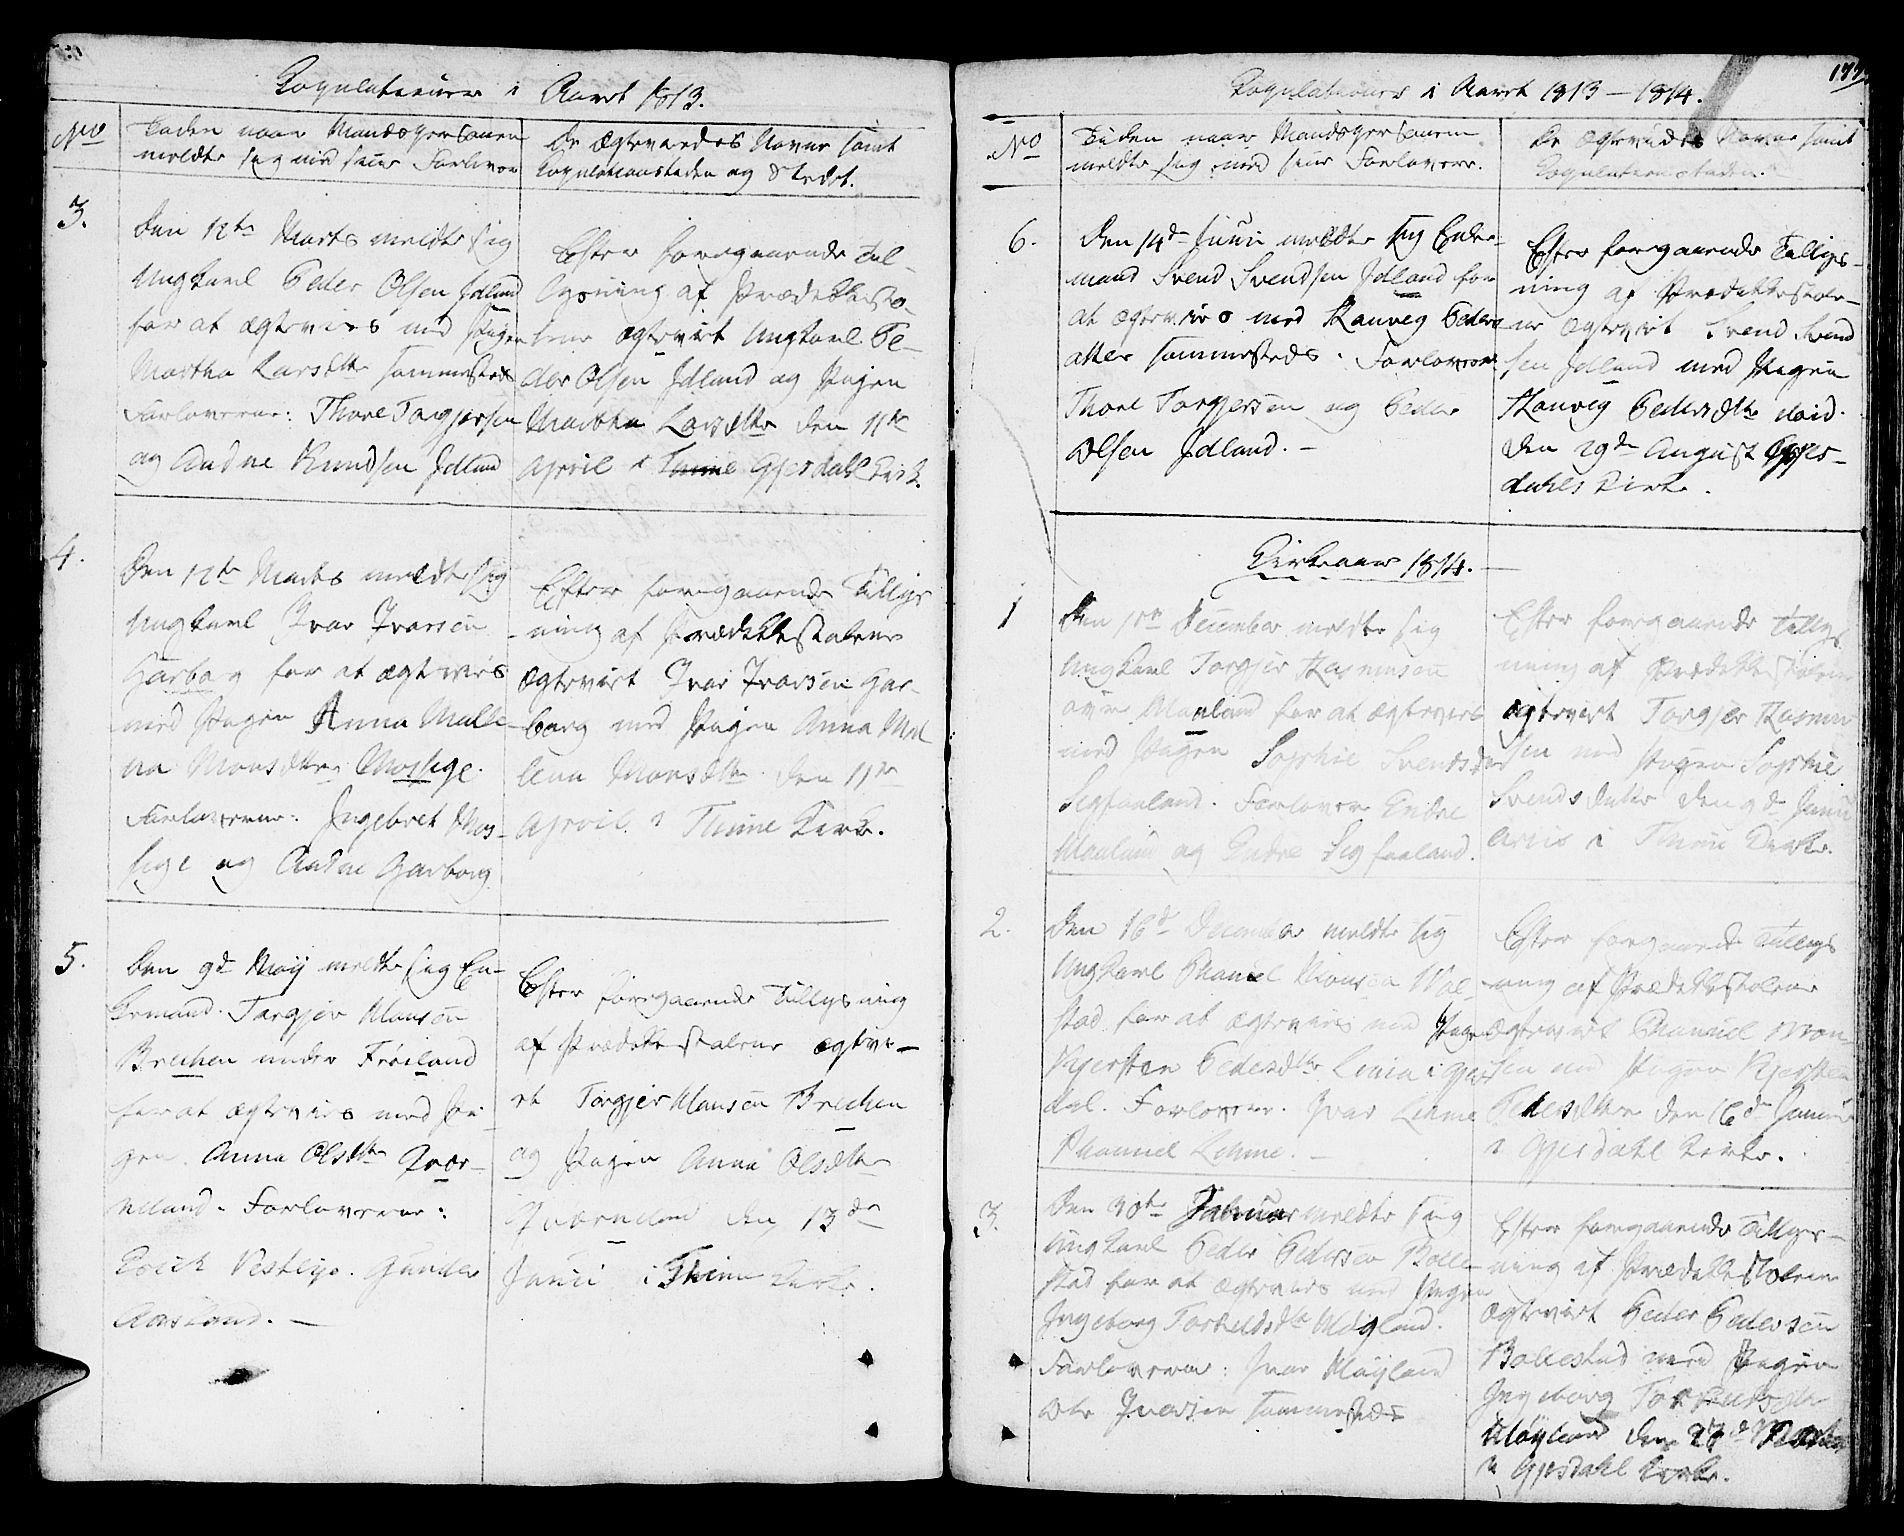 Copulationer i Aaret 1813.
No
Tiden naar Mandspersonen
meldte sig med sine Forlover
De Ægteviedes Navne samt
Copulationstiden og Stedet.
3.
Den 12te Marts meldte sig
Ungkarl Peder Olsen Idland
for at ægtevies med Pigen
Martha Larsdtr sammesteds
Forlovere: Thore Torgjersen
og Audne Knudsen Idland
Efter foregaaende Til-
lysning af Prædikesto-
lene ægteviet Ungkarl Pe-
der Olsen Idland og Pigen
Martha Larsdtr den 11te
April i Gjesdahl Kirk.
4.
Den 12te Marts meldte sig
Ungkarl Ivar Ivarsen
Garborg for at ægtevies
med Pigen Anna Malle-
na Monsdtr Mossige.
Forlovere: Ingebret Mos-
sige og Audne Garborg
Efter foregaaende Tillys-
ning af Prædikestolene
ægteviet Ivar Ivarsen Gar-
borg med Pigen Anna Mal
lena Monsdtr den 11te
April i Thime Kirke.
5.
Den 9de Maij meldte sig En-
kemand Torgjer Monsen
Brechen under Frøiland
for at ægtevies med Pi-
gen Anna Olsdtr Qvær-
neland. Forlovere:
Erich Vestlye. Gunder
Aarsland. -
Efter foregaaende Tillysning
af Prædikestolene ægtevi-
et Torgjer Monsen Brechen
og Pigen Anna Olsdtr
Qværneland den 13de
Junii i Thime Kirke.
Copulationer i Aaret 1813 - 1814.
177
No
Tiden naar Mandspersonen
meldte sig med sine Forlovere.
De Ægteviedes Navne samt
Copulationstiden.
6.
Den 14de Junii meldte sig Enke-
mand Svend Svendsen Idland for
at ægtevies med Ranveg Peders
datter sammesteds. Forlovere
Thore Torgjersen og Peder
Olsen Idland. -
Efter foregaaende Tillys-
ning af Prædikestole-
ne ægteviet Svend Svend
sen Idland med Pigen
Ranveg Pedersdtr ibid.
den 29de August Gjes-
dahls Kirke.
Kirkeaar 1814.
1
Den 1te December meldte sig
Ungkarl Torgjer Rasmusen
øvre Maaland for at ægtevies
med Pigen Sophie Svendsdtr
Sigfaland. Forlovere Endre
Maaland og Endre Sigfaland.
Efter foregaaende Tillys
ning af Prædikestolene
ægteviet Torgjer Rasmu
sen med Pigen Sophie
Svendsdatter den 9de Janu
arii i Thime Kirke.
2.
Den 16de December meldte sig
stad for at ægtevies med Pigen
Kjersten Pedersdtr Limen i Gjes
dal. Forlovere. Ivar Lime
Efter foregaaende Tillys
ning af Prædikestolene
sen med Pigen Kjersten
Pedersdtr den 16de Januar
i Gjesdahl Kirke.
3.
Den 30te Januar meldte sig
Ungkarl Peder Pedersen Bolle-
stad for at ægtevies med Pigen
Ingeborg Torkelsdtr Møgland.
Forlovere: Ivar Møyland
Ole Iversen sammesteds
Efter foregaaende Tillys-
ning af Prædikestolene
ægteviet Peder Pedersen
Bollestad med Pigen
Ingeborg Torkelsdtr
Møyland den 27de Marts
i Gjesdahl Kirke.